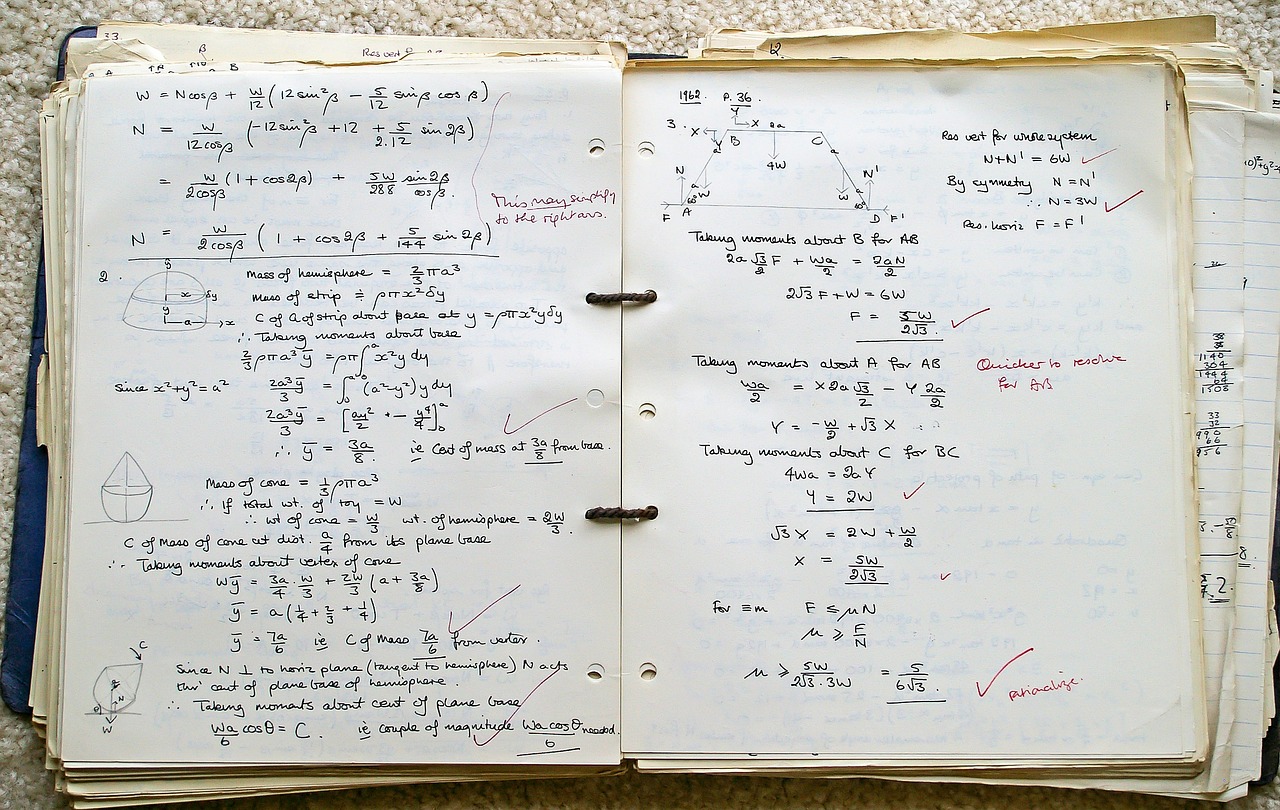 33.
β
Res vert
B
W = Ncosβ + W/12 (12sin²β − 5/12 sinβ cosβ)
N = W/12cosβ (−12sin²β + 12 + 5/2.12 sin2β)
= W/2cosβ (1 + cos2β) + 5W/288 sin2β/cosβ.
This may simplify
to the right ans.
N = W/2cosβ (1 + cos2β + 5/144 sin2β)
2.
y
x δy
y
a x
Mass of hemisphere = 2/3 πa³
Mass of strip ≑ ρπx²δy
C of G of strip about base at y = ρπx²yδy
∴ Taking moments about base
2/3 ρπa³ȳ = ρπ∫₀ᵃ x²y dy
Since x²+y² = a² 2a³ȳ/3 = ∫₀ᵃ (a²−y²)y dy
2a³ȳ/3 = [ay²/2 − y⁴/4]₀ᵃ
∴ ȳ = 3a/8 ie Cent of mass at 3a/8 from base.
Mass of cone = 1/3 ρπa³
∴ If total wt. of toy = W
∴ wt of cone = W/3 wt. of hemisphere = 2W/3.
C of Mass of cone at dist. a/4 from its plane base
∴ Taking moments about vertex of cone
Wȳ = 3a/4 · W/3 + 2W/3 (a + 3a/8)
ȳ = a(1/4 + 2/3 + 1/4)
ȳ = 7a/6 ie C of Mass 7a/6 from vertex.
C
N
θ
W
Since N ⊥ to horiz plane (tangent to hemisphere) N acts
thro' cent of plane base of hemisphere.
∴ Taking moments about cent of plane base
Wa/6 cosθ = C. ie couple of magnitude Wa cosθ/6 needed.
12.
1962. P. 36.
3.
Y
X X 2a
Y B C
a a
4W
N a a N'
W W
60° 60°
F A D F'
Res vert for whole system
N+N' = 6W
By symmetry N = N'
∴ N = 3W
Res. horiz F = F'
Taking moments about B for AB
2a √3/2 F + Wa/2 = 2aN/2
2√3 F + W = 6W
F = 5W/2√3.
Taking moments about A for AB
Quicker to resolve
for AB
Wa/2 = X 2a √3/2 − Y 2a/2
Y = −W/2 + √3 X
Taking moments about C for BC
4Wa = 2aY
Y = 2W
√3 X = 2W + W/2
X = 5W/2√3
For ≡m F ≤ μN
μ ≥ F/N
μ ≥ 5W/2√3.3W = 5/6√3.
rationalize.
38
38
1140
304
1444
64
1508
33
32
990
66
956
8.
2.